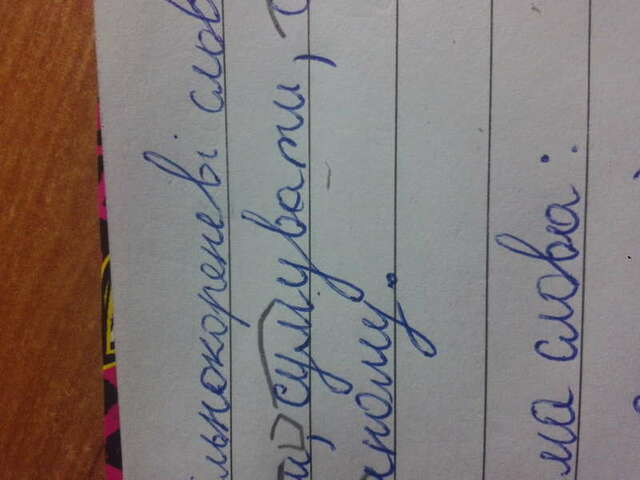 льнокореневі слов
и, сумувати,
ному.
ма слова: